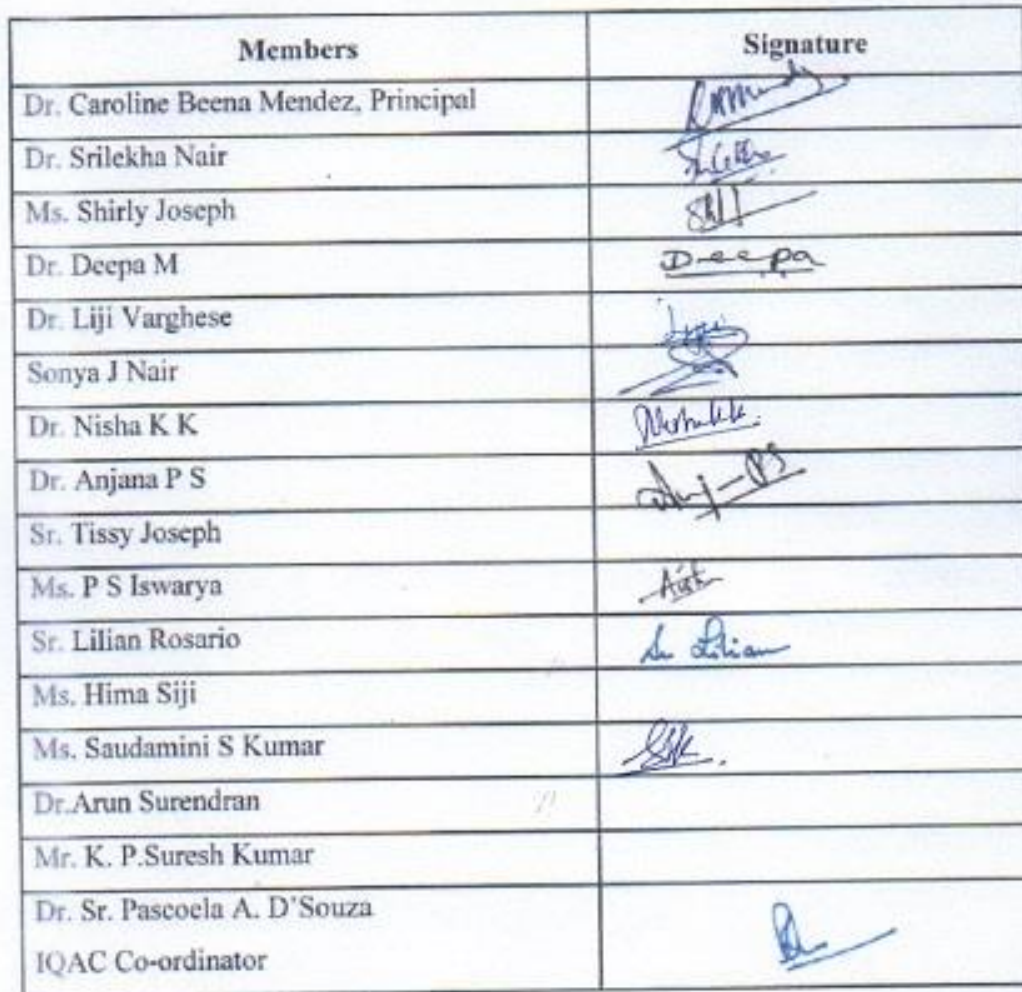 Members Signature
Dr. Caroline Beena Mendez, Principal
Dr. Srilekha Nair
Ms. Shirly Joseph
Dr. Deepa M Deepa
Dr. Liji Varghese
Sonya J Nair
Dr. Nisha K K Nisha kk.
Dr. Anjana P S
Sr. Tissy Joseph
Ms. P S Iswarya
Sr. Lilian Rosario Sr Lilian
Ms. Hima Siji
Ms. Saudamini S Kumar
Dr.Arun Surendran
Mr. K. P.Suresh Kumar
Dr. Sr. Pascoela A. D'Souza
IQAC Co-ordinator